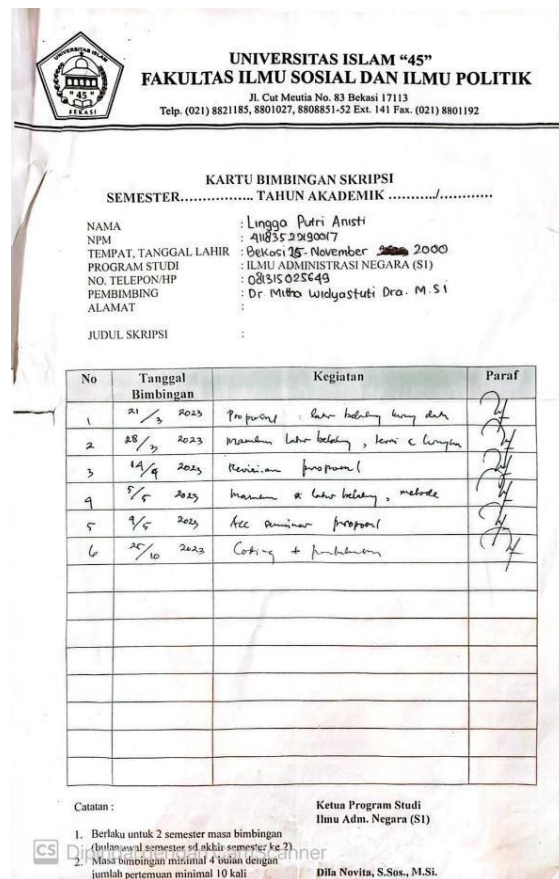 UNIVERSITAS ISLAM
"45"
BEKASI
UNIVERSITAS ISLAM “45”
FAKULTAS ILMU SOSIAL DAN ILMU POLITIK
Jl. Cut Meutia No. 83 Bekasi 17113
Telp. (021) 8821185, 8801027, 8808851-52 Ext. 141 Fax. (021) 8801192
KARTU BIMBINGAN SKRIPSI
SEMESTER................ TAHUN AKADEMIK ........../............
NAMA : Lingga Putri Anisti
NPM : 41183522190017
TEMPAT, TANGGAL LAHIR : Bekasi 25 - November 2000
PROGRAM STUDI : ILMU ADMINISTRASI NEGARA (S1)
NO. TELEPON/HP : 081315025649
PEMBIMBING : Dr. Widyastuti Dra. M.Si
ALAMAT :
JUDUL SKRIPSI :
No Tanggal Bimbingan Kegiatan Paraf
1 21/3 2023 Proposal : latar belakang kurang data
2 28/3 2023 latar belakang, teori
3 14/4 2023 Revisian proposal
4 5/5 2023 latar belakang, metode
5 9/5 2023 Acc seminar proposal
6 25/10 2023 Coding +
Catatan :
1. Berlaku untuk 2 semester masa bimbingan
(bulan awal semester sd.akhir semester ke 2)
2. Masa bimbingan minimal 4 bulan dengan
jumlah pertemuan minimal 10 kali
Ketua Program Studi
Ilmu Adm. Negara (S1)
Dila Novita, S.Sos., M.Si.
CS Dipindai dengan CamScanner